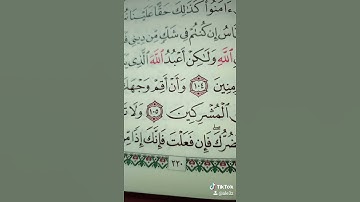 ءَامَنُوا۟ كَذَٰلِكَ حَقًّا عَلَيْنَا
نَّاسُ إِن كُنتُمْ فِى شَكٍّ مِّن دِينِى
ٱللَّهِ وَلَٰكِنْ أَعْبُدُ ٱللَّهَ ٱلَّذِى
مِنِينَ ١٠٤ وَأَنْ أَقِمْ وَجْهَكَ
ٱلْمُشْرِكِينَ ١٠٥ وَلَا
ضُرُّكَ ۖ فَإِن فَعَلْتَ فَإِنَّكَ إِذًا
٢٢٠
TikTok